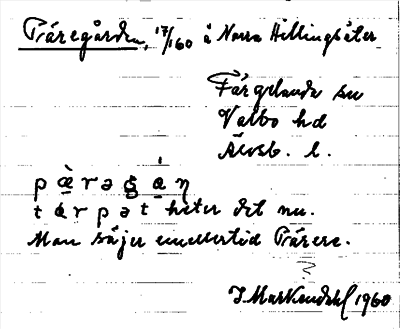 Präregården, 17/160 å Norra Hillingsäter
Färgelanda sn
Valbo hd
Älvsb. l.
pæ̀rəgán
tárpət heter det nu.
Man säjer emellertid Prärere.
?
J. Markendahl 1960